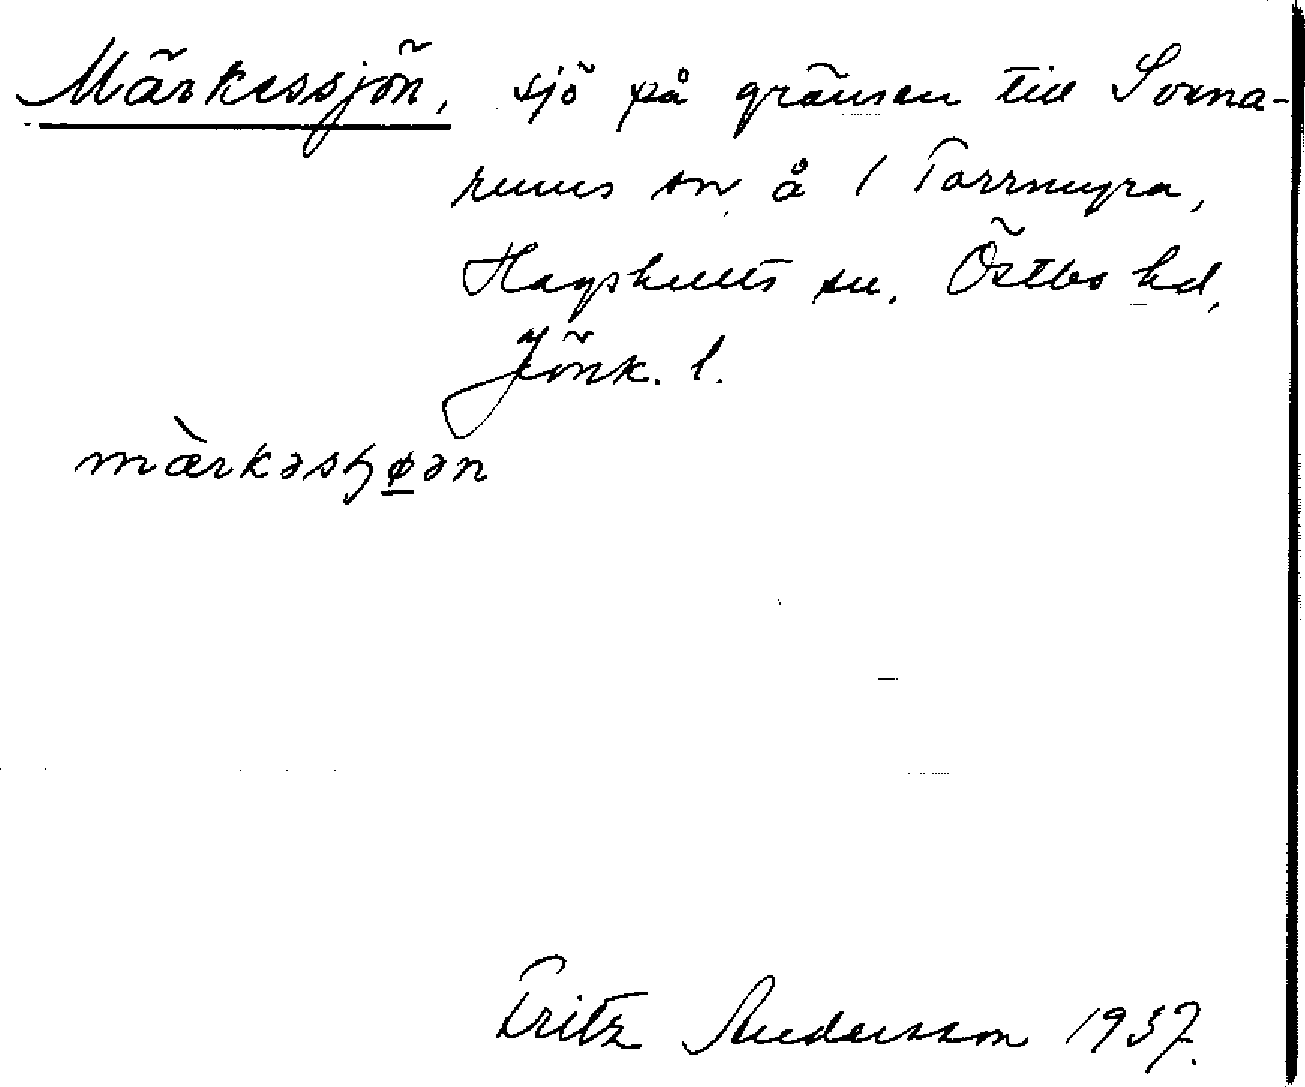 Märkessjön, sjö på gränsen till Svena-
rums sn å 1 Torrmyra,
Hagshults sn, Östbo hd,
Jönk. l.
mæ̀rkəsꞕø̲ən
Fritz Andersson 1937.